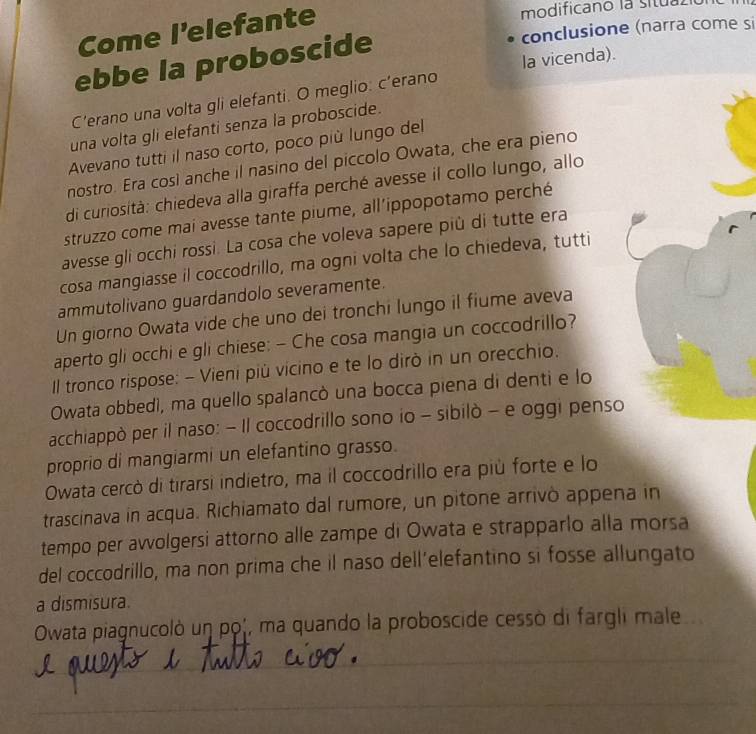 Come l'elefante
ebbe la proboscide
C'erano una volta gli elefanti. O meglio: c'erano
una volta gli elefanti senza la proboscide.
Avevano tutti il naso corto, poco più lungo del
nostro. Era così anche il nasino del piccolo Owata, che era pieno
di curiosità: chiedeva alla giraffa perché avesse il collo lungo, allo
struzzo come mai avesse tante piume, all'ippopotamo perché
avesse gli occhi rossi. La cosa che voleva sapere più di tutte era
cosa mangiasse il coccodrillo, ma ogni volta che lo chiedeva, tutti
ammutolivano guardandolo severamente.
Un giorno Owata vide che uno dei tronchi lungo il fiume aveva
aperto gli occhi e gli chiese: – Che cosa mangia un coccodrillo?
Il tronco rispose: – Vieni più vicino e te lo dirò in un orecchio.
Owata obbedì, ma quello spalancò una bocca piena di denti e lo
acchiappò per il naso: – Il coccodrillo sono io – sibilò – e oggi penso
proprio di mangiarmi un elefantino grasso.
Owata cercò di tirarsi indietro, ma il coccodrillo era più forte e lo
trascinava in acqua. Richiamato dal rumore, un pitone arrivò appena in
tempo per avvolgersi attorno alle zampe di Owata e strapparlo alla morsa
del coccodrillo, ma non prima che il naso dell'elefantino si fosse allungato
a dismisura.
Owata piagnucolò un po', ma quando la proboscide cessò di fargli male...
e questo è tutto cioo.
modificano la situazione
• conclusione (narra come si
la vicenda).